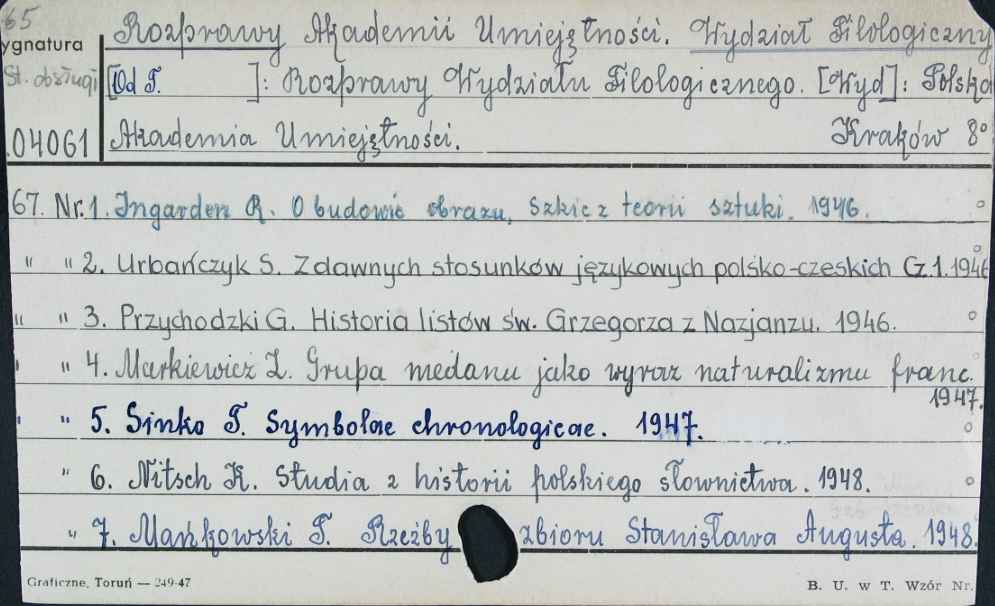 65
ygnatura
St. obsługi
.04061
Rozprawy Akademii Umiejętności. Wydział Filologiczny
[Od T. ]: Rozprawy Wydziału Filologicznego. [Wyd]: Polska
Akademia Umiejętności. Kraków 8°
67. Nr. 1. Ingarden R. O budowie obrazu, Szkic z teorii sztuki. 1946.
" " 2. Urbańczyk S. Z dawnych stosunków językowych polsko-czeskich Cz. 1. 1946
" " 3. Przychodzki G. Historia listów św. Grzegorza z Nazjanzu. 1946.
" " 4. Markiewicz Z. Grupa medanu jako wyraz naturalizmu franc.
1947.
" " 5. Sinko T. Symbolae chronologicae. 1947.
" 6. Nitsch K. Studia z historii polskiego słownictwa. 1948.
" 7. Mańkowski T. Rzeźby zbioru Stanisława Augusta. 1948.
Graficzne, Toruń — 249-47
B. U. w T. Wzór Nr.